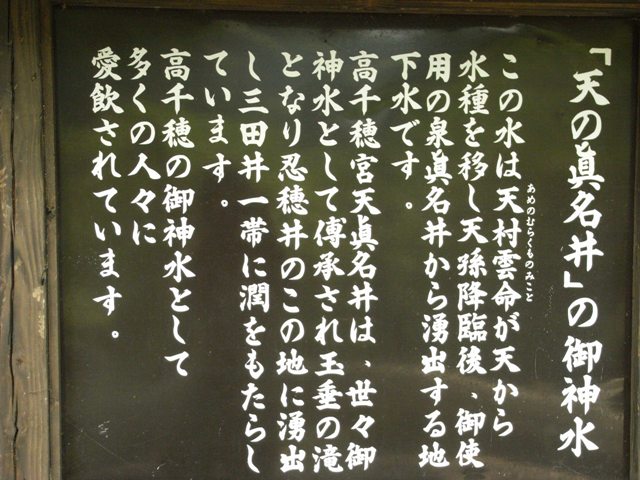 「天の眞名井」の御神水
この水は天村雲命が天から
あめのむらくものみこと
水種を移し天孫降臨後、御使
用の泉眞名井から湧出する地
下水です。
高千穂宮天眞名井は、世々御
神水として傳承され玉垂の滝
となり忍穂井のこの地に湧出
し三田井一帯に潤をもたらし
ています。
高千穂の御神水として
多くの人々に
愛飲されています。